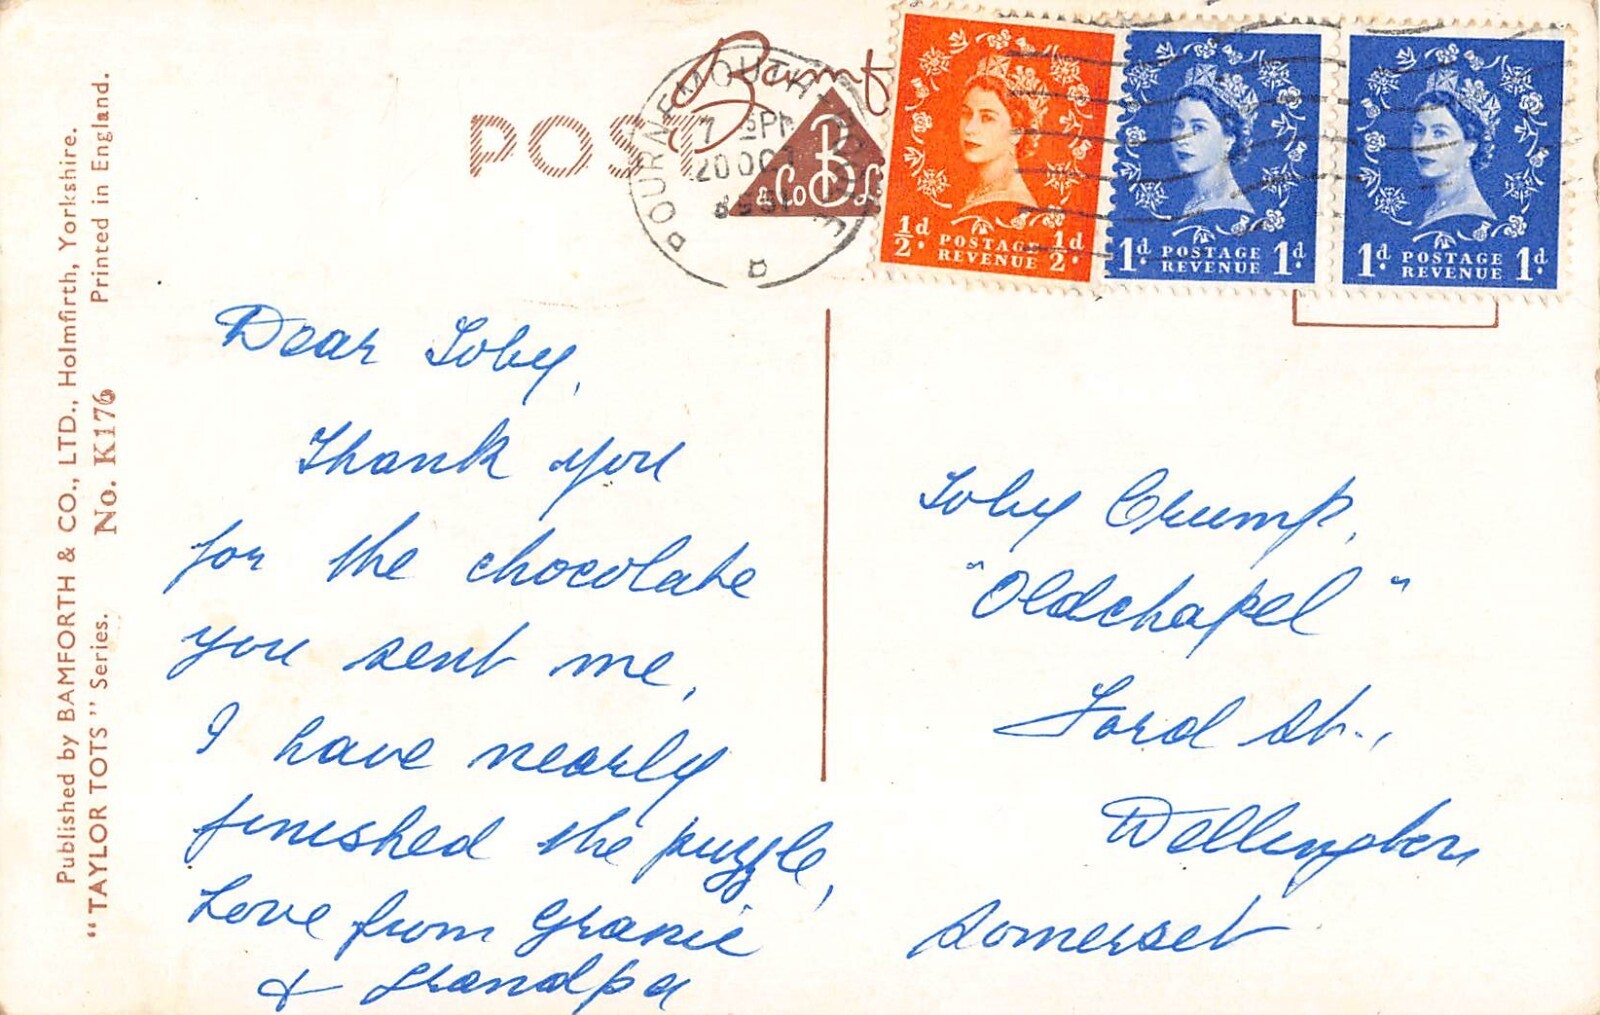 Published by BAMFORTH & CO., LTD., Holmfirth, Yorkshire.
"TAYLOR TOTS" Series. No. K176 Printed in England.
POST
Bamf
& Co B L
BOURNEMOUTH POOLE
7 PM
20 OC
D
½d POSTAGE ½d
REVENUE
1d POSTAGE 1d
REVENUE
1d POSTAGE 1d
REVENUE
Dear Toby,
Thank you
for the chocolate
you sent me,
I have nearly
finished the puzzle,
Love from Granie
& Grandpa
Toby Crump,
"Oldchapel"
Ford St.,
Wellington
Somerset